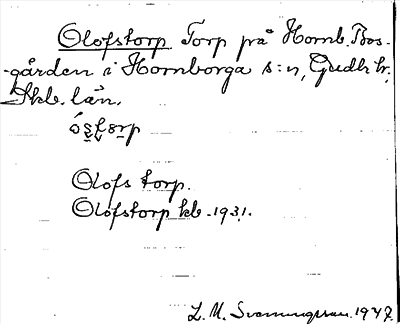 Olofstorp Torp på Hornb. Bos-
gården i Hornborga s:n, Gudh. hr.
Skb. län.
Olofs torp.
Olofstorp kb. 1931.
L. M. Svenungsson. 1947.